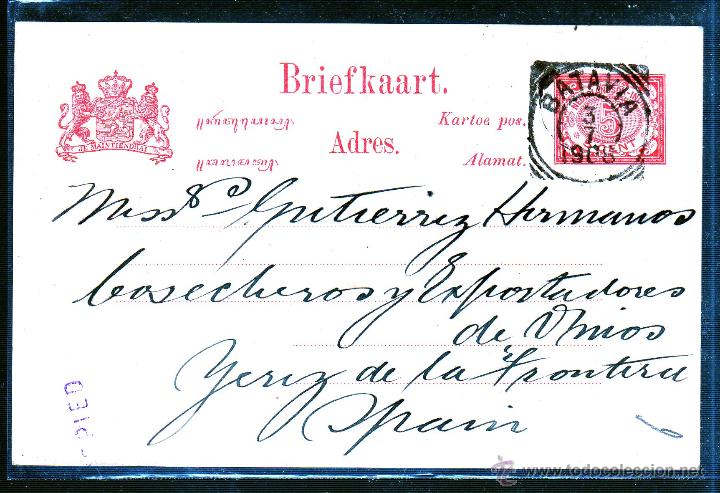 Briefkaart.
JE MAINTIENDRAI
Kartoe pos.
Adres.
Alamat.
BATAVIA
3
7
5
CENT
Messrs Gutierrez Hermanos
Cosecheros y Exportadores
de Vinos
Yerez de la Frontera
Spain
todocoleccion.net